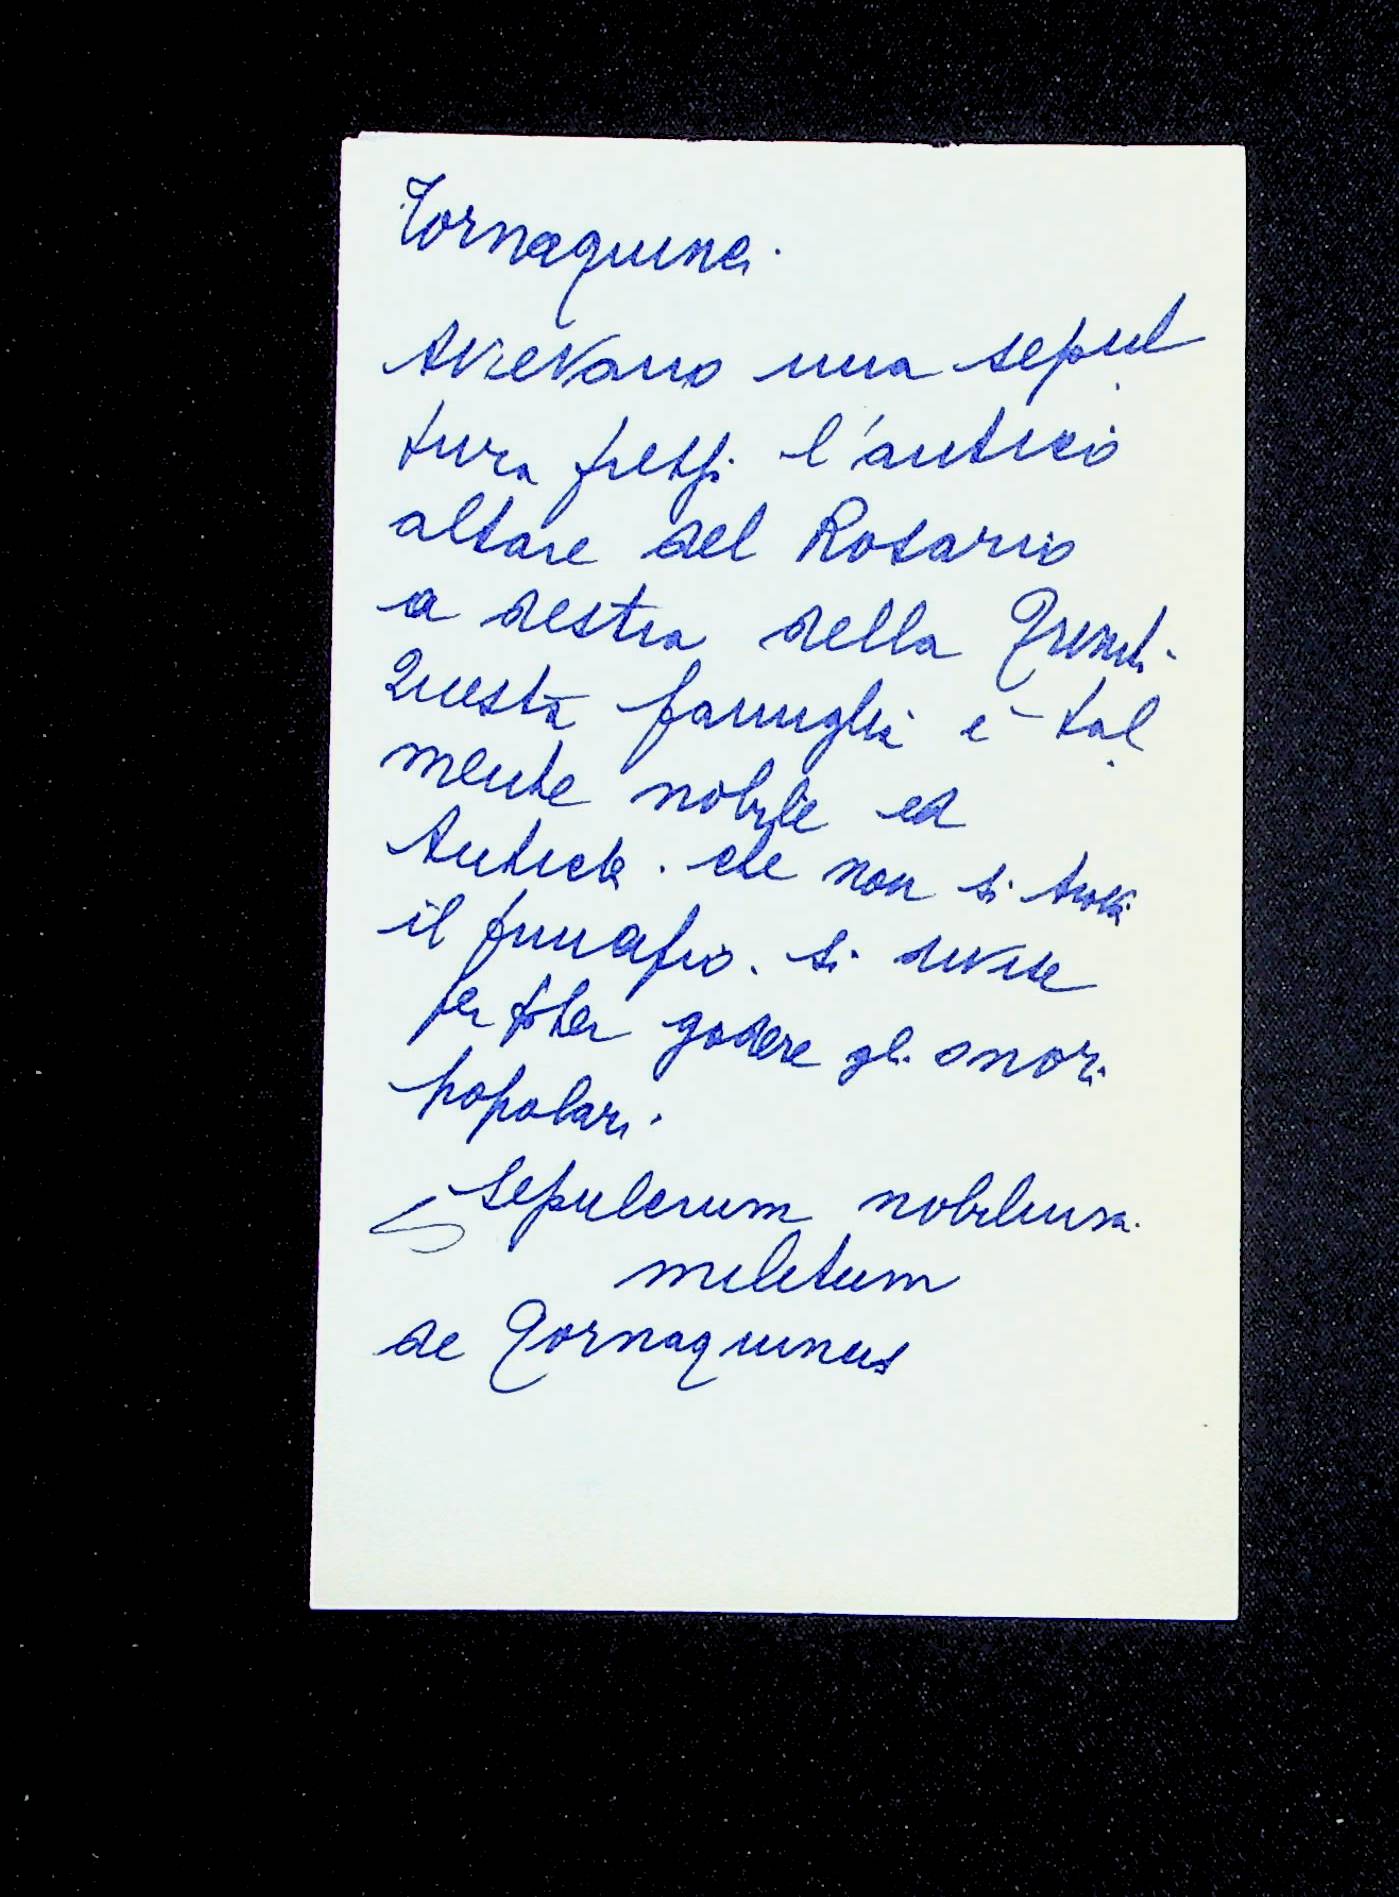 Tornaquinci.
Avevano una sepul
tura press. l'antico
altare del Rosario
a destra della Trinit.
Questa famiglia è tal
mente nobile ed
Antica. che non si trova
il . si divise
per poter godere gli onori
popolari.
Sepulcrum nobilium.
militum
de Tornaquincis